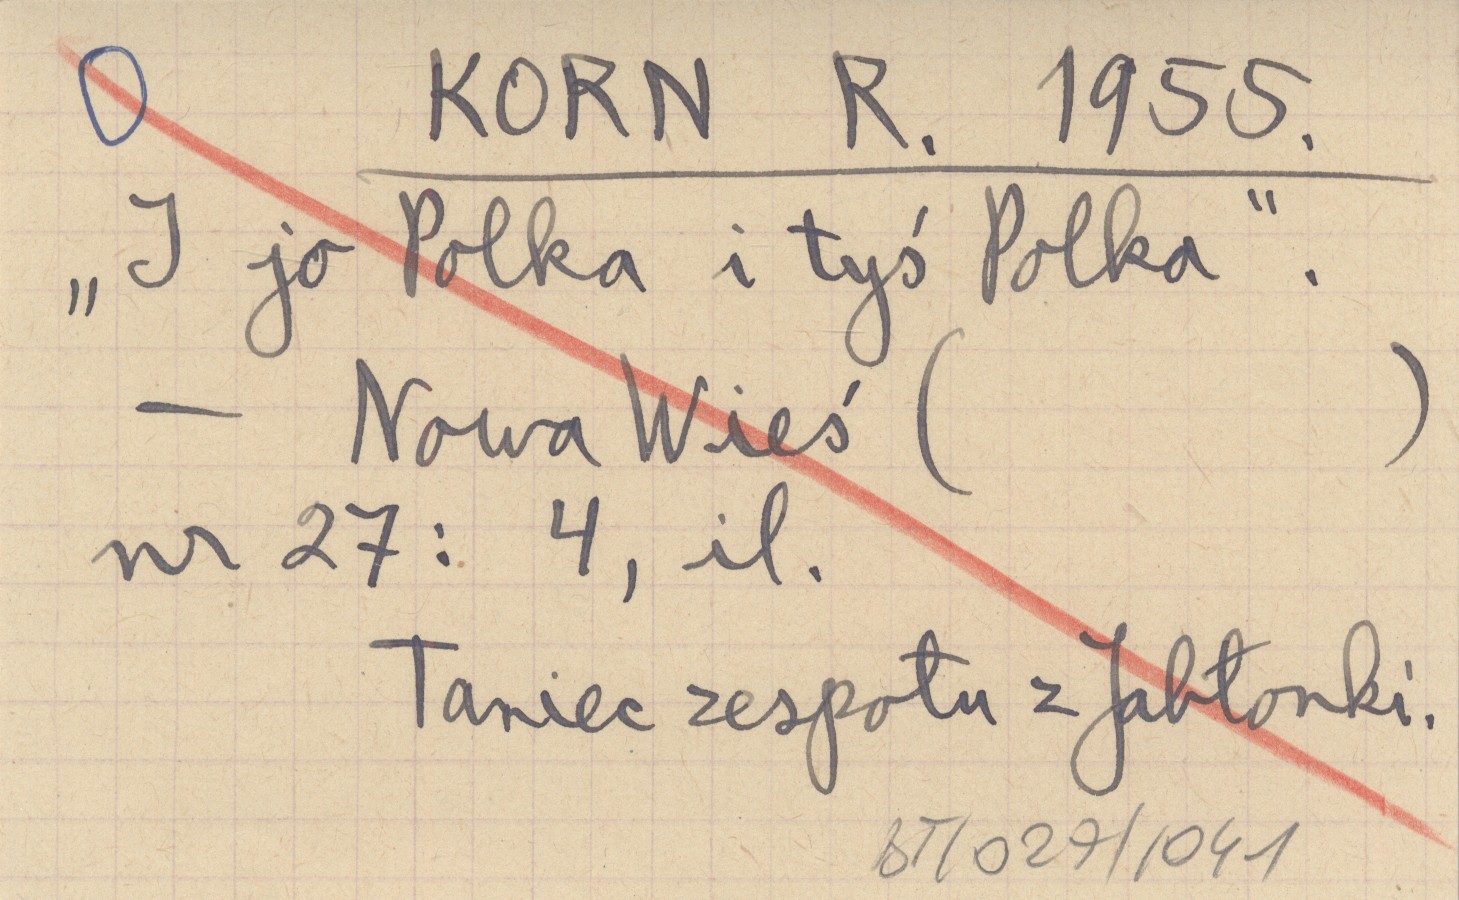 O KORN R. 1955.
„I jo Polka i tyś Polka“.
— Nowa Wieś ( )
nr 27: 4, il.
Taniec zespołu z Jabłonki.
BT/027/1041